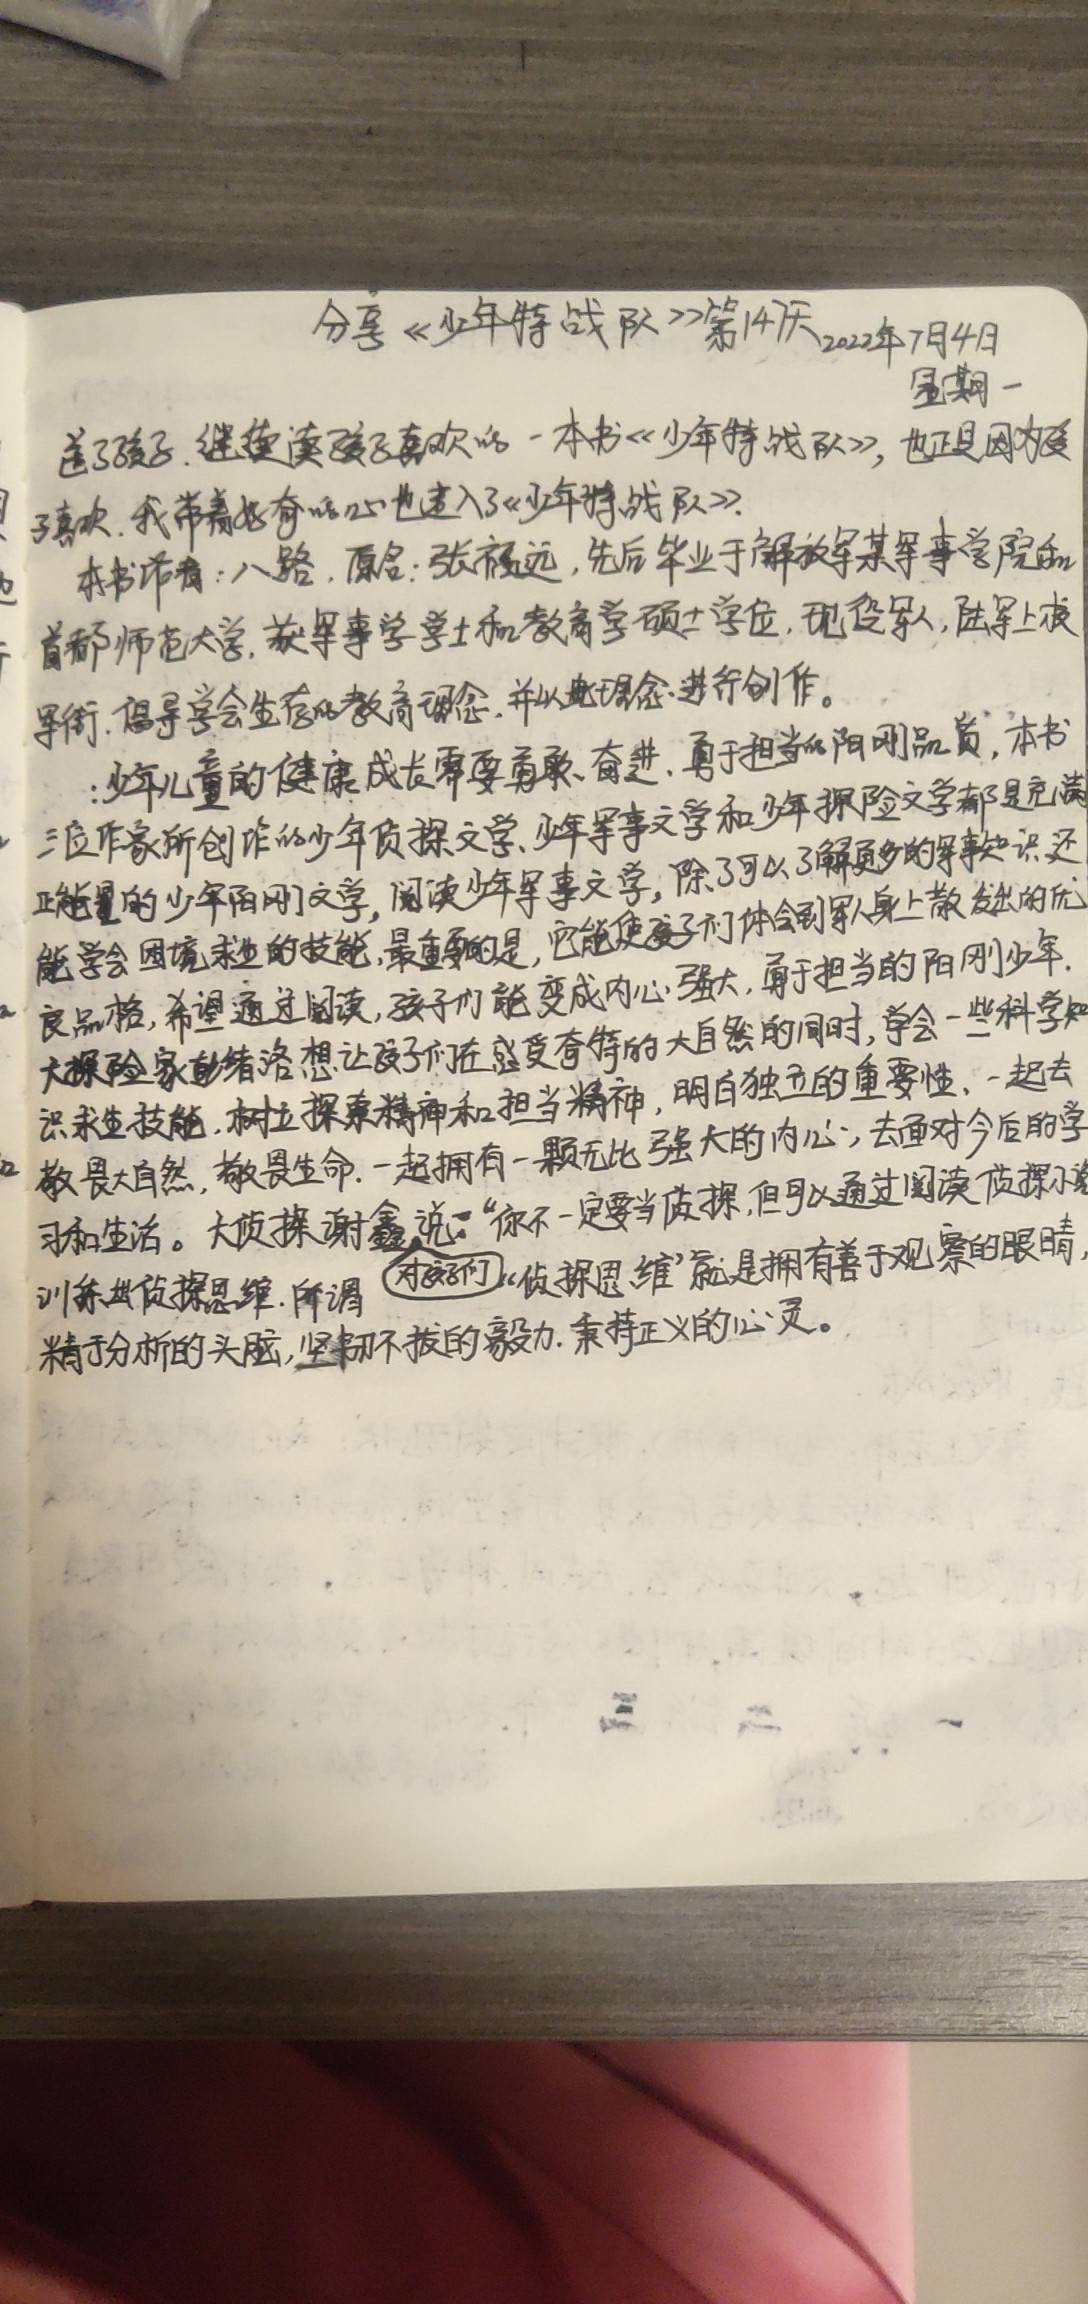 分享《少年特战队》第147天
2022年7月4日
星期一
送了孩子.继续读孩子喜欢的一本书《少年特战队》,也正是因为孩
子喜欢.我带着好奇的心也走入了《少年特战队》.
本书作者:八路.原名:张永远,先后毕业于解放军某军事学院和
首都师范大学.获军事学学士和教育学硕士学位.现役军人,陆军上校
军衔.倡导学会生存的教育理念.并以此理念进行创作。
:少年儿童的健康成长需要勇敢、奋进、勇于担当的阳刚品质,本书
三位作家所创作的少年侦探文学、少年军事文学和少年探险文学都是充满
正能量的少年阳刚文学,阅读少年军事文学,除了可以了解更多的军事知识还
能学会困境求生的技能,最重要的是,它能使孩子们体会到军人身上散发出的优
良品格,希望通过阅读,孩子们能变成内心强大,勇于担当的阳刚少年.
大探险家彭绪洛想让孩子们在感受奇特的大自然的同时,学会一些科学知
识求生技能.树立探索精神和担当精神,明白独立的重要性.一起去
敬畏大自然,敬畏生命.一起拥有一颗无比强大的内心,去面对今后的学
习和生活。大侦探谢鑫说:“你不一定要当侦探,但可以通过阅读侦探小说
对孩子们
训练出侦探思维.所谓“侦探思维”就是拥有善于观察的眼睛,
精于分析的头脑,坚韧不拔的毅力.秉持正义的心灵。
一 二 三